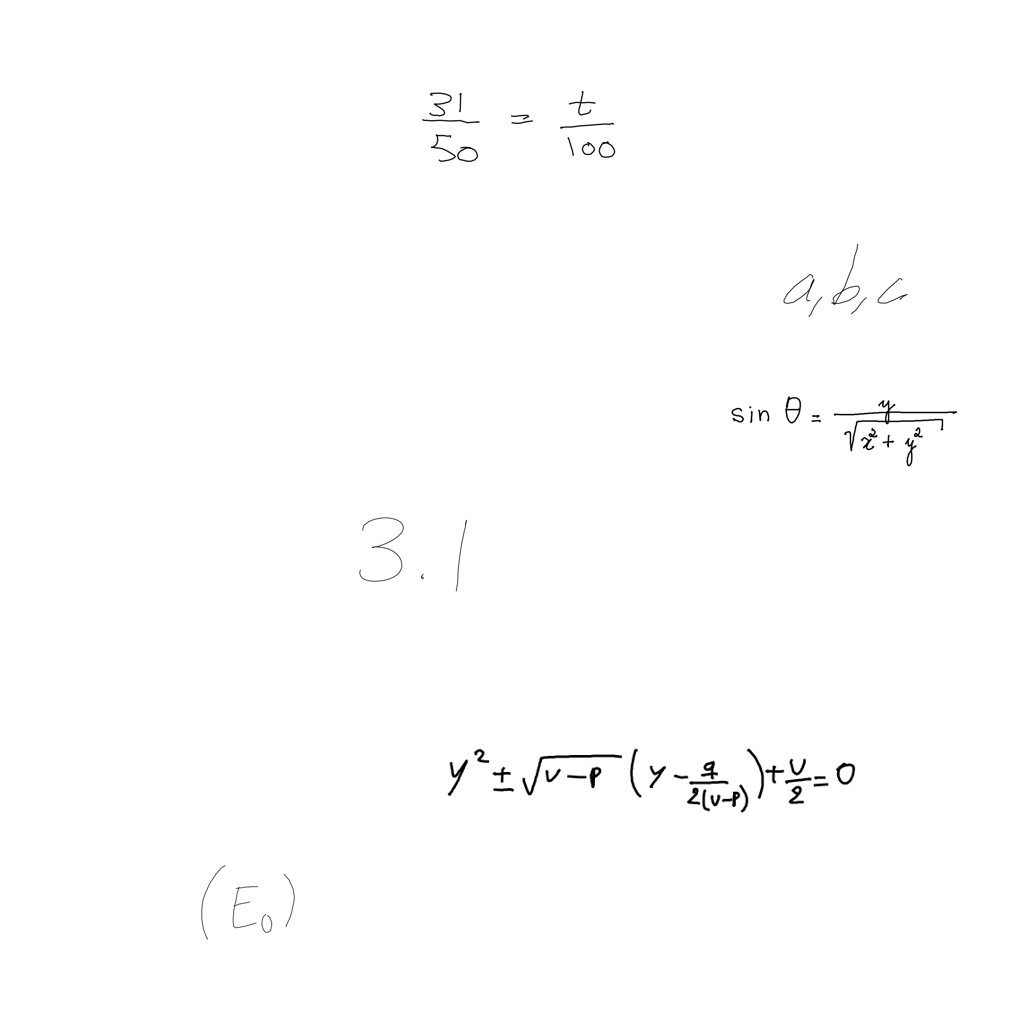 \frac{31}{50} = \frac{t}{100}
a, b, c
\sin \theta = \frac{y}{\sqrt{x^2 + y^2}}
3.1
y^2 \pm \sqrt{v-p} \left( y - \frac{q}{2(v-p)} \right) + \frac{v}{2} = 0
(E_0)